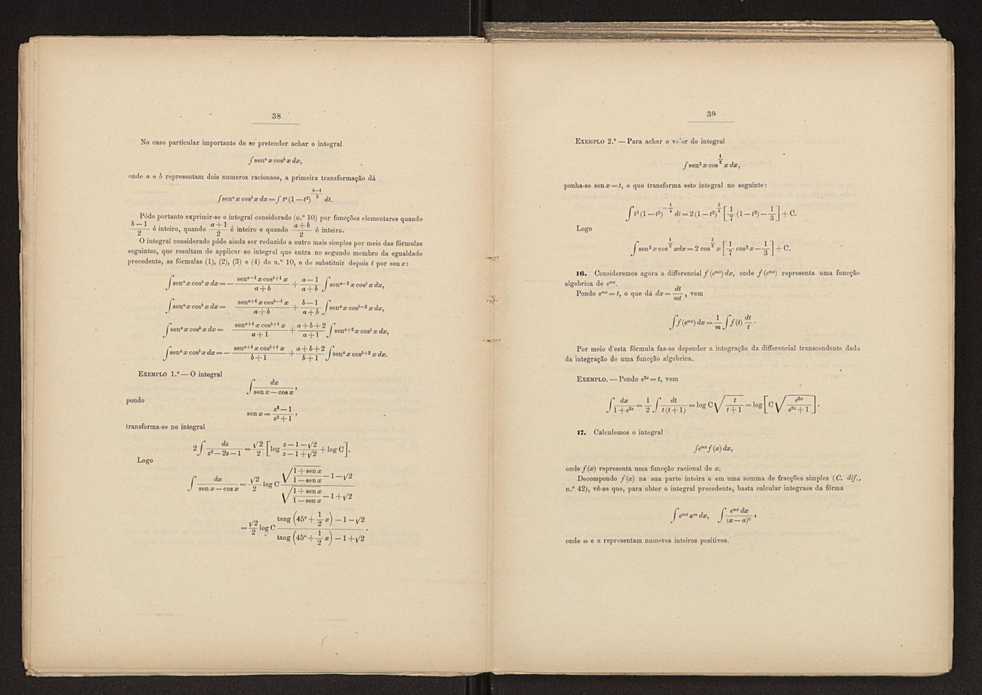 38
No caso particular importante de se pretender achar o integral
∫ senᵃ x cosᵇ x dx,
onde a e b representam dois numeros racionaes, a primeira transformação dá
∫ senᵃ x cosᵇ x dx = ∫ tᵃ (1 — t²)^((b—1)/2) dt.
Póde portanto exprimir-se o integral considerado (n.º 10) por funcções elementares quando
(b — 1)/2 é inteiro, quando (a + 1)/2 é inteiro e quando (a + b)/2 é inteiro.
O integral considerado póde ainda ser reduzido a outro mais simples por meio das fórmulas
seguintes, que resultam de applicar ao integral que entra no segundo membro da egualdade
precedente, as fórmulas (1), (2), (3) e (4) do n.º 10, e de substituir depois t por sen x:
∫ senᵃ x cosᵇ x dx = — (senᵃ⁻¹ x cosᵇ⁺¹ x)/(a + b) + (a — 1)/(a + b) ∫ senᵃ⁻² x cosᵇ x dx,
∫ senᵃ x cosᵇ x dx = (senᵃ⁺¹ x cosᵇ⁻¹ x)/(a + b) + (b — 1)/(a + b) ∫ senᵃ x cosᵇ⁻² x dx,
∫ senᵃ x cosᵇ x dx = (senᵃ⁺¹ x cosᵇ⁺¹ x)/(a + 1) + (a + b + 2)/(a + 1) ∫ senᵃ⁺² x cosᵇ x dx,
∫ senᵃ x cosᵇ x dx = — (senᵃ⁺¹ x cosᵇ⁺¹ x)/(b + 1) + (a + b + 2)/(b + 1) ∫ senᵃ x cosᵇ⁺² x dx.
EXEMPLO 1.º — O integral
∫ dx/(sen x — cos x),
pondo
sen x = (z² — 1)/(z² + 1),
transforma-se no integral
2 ∫ dz/(z² — 2z — 1) = √2/2 [log (z — 1 — √2)/(z — 1 + √2) + log C].
Logo
∫ dx/(sen x — cos x) = √2/2 log C (√((1 + sen x)/(1 — sen x)) — 1 — √2)/(√((1 + sen x)/(1 — sen x)) — 1 + √2)
= √2/2 log C (tang (45º + 1/2 x) — 1 — √2)/(tang (45º + 1/2 x) — 1 + √2).
39
EXEMPLO 2.º — Para achar o valor do integral
∫ sen³ x cos^(1/2) x dx,
ponha-se sen x = t, o que transforma este integral no seguinte:
∫ t³ (1 — t²)^(—1/4) dt = 2 (1 — t²)^(3/4) [1/7 (1 — t²) — 1/3] + C.
Logo
∫ sen³ x cos^(1/2) x dx = 2 cos^(3/2) x [1/7 cos² x — 1/3] + C.
16. Consideremos agora a differencial f (eᵐˣ) dx, onde f (eᵐˣ) representa uma funcção
algebrica de eᵐˣ.
Pondo eᵐˣ = t, o que dá dx = dt/mt, vem
∫ f (eᵐˣ) dx = 1/m ∫ f (t) dt/t.
Por meio d'esta fórmula faz-se depender a integração da differencial transcendente dada
da integração de uma funcção algebrica.
EXEMPLO. — Pondo e²ˣ = t, vem
∫ dx/(1 + e²ˣ) = 1/2 ∫ dt/(t (t + 1)) = log C √(t/(t + 1)) = log [C √(e²ˣ/(e²ˣ + 1))].
17. Calculemos o integral
∫ eᵐˣ f (x) dx,
onde f (x) representa uma funcção racional de x.
Decompondo f (x) na sua parte inteira e em uma somma de fracções simples (C. dif.,
n.º 42), vê-se que, para obter o integral precedente, basta calcular integraes da fórma
∫ eᵐˣ xⁿ dx, ∫ eᵐˣ dx/(x — a)ⁿ,
onde m e n representam numeros inteiros positivos.